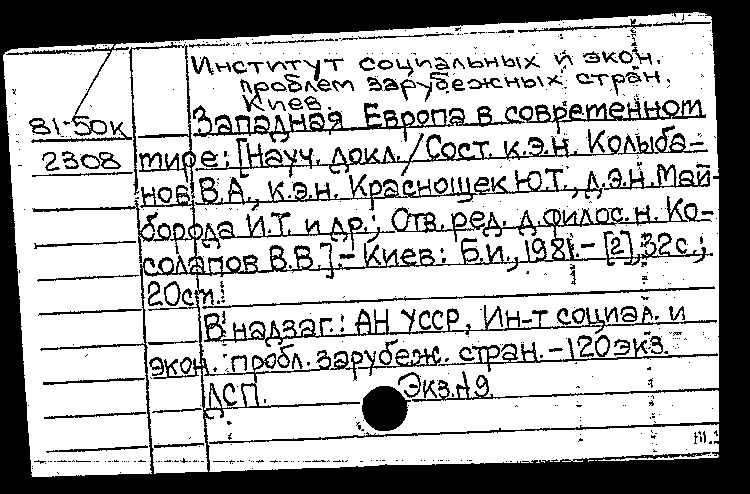 Институт социальных и экон.
проблем зарубежных стран.
Киев.
81-50к
2308
Западная Европа в современном
мире: [Науч. докл./Сост. к.э.н. Колыба-
нов В.А., к.э.н. Краснощек Ю.Т., д.э.н. Май-
борода И.Т. и др.; Отв. ред. д.филос.н. Ко-
солапов В.В.].- Киев: Б.и., 1981.- [2], 32 с.;
20см.
В надзаг.: АН УССР, Ин-т социал. и
экон. пробл. зарубеж. стран. -120 экз.
ДСП. Экз.№9